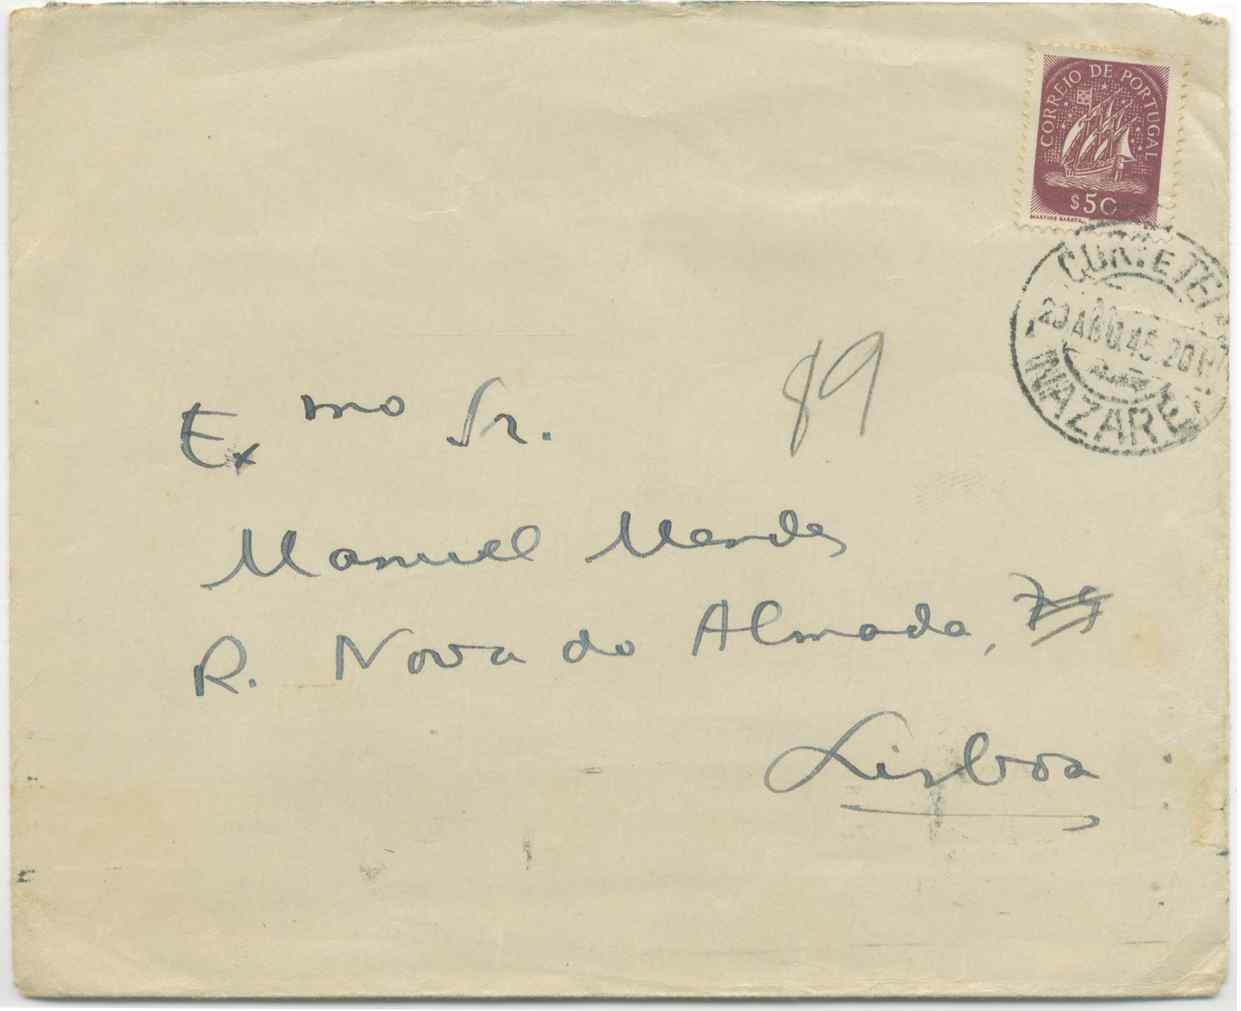 CORREIO DE PORTUGAL
$50
MARTINS BARATA
29 AGO. 45. 20 H
NAZARÉ
89
Exmo Sr.
Manuel Mendes
R. Nova do Almada,
Lisboa